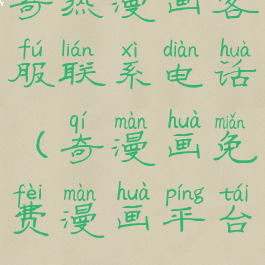 奇热漫画客
fú lián xì diàn huà
服联系电话
qí màn huà miǎn
(奇漫画免
fèi màn huà píng tái
费漫画平台